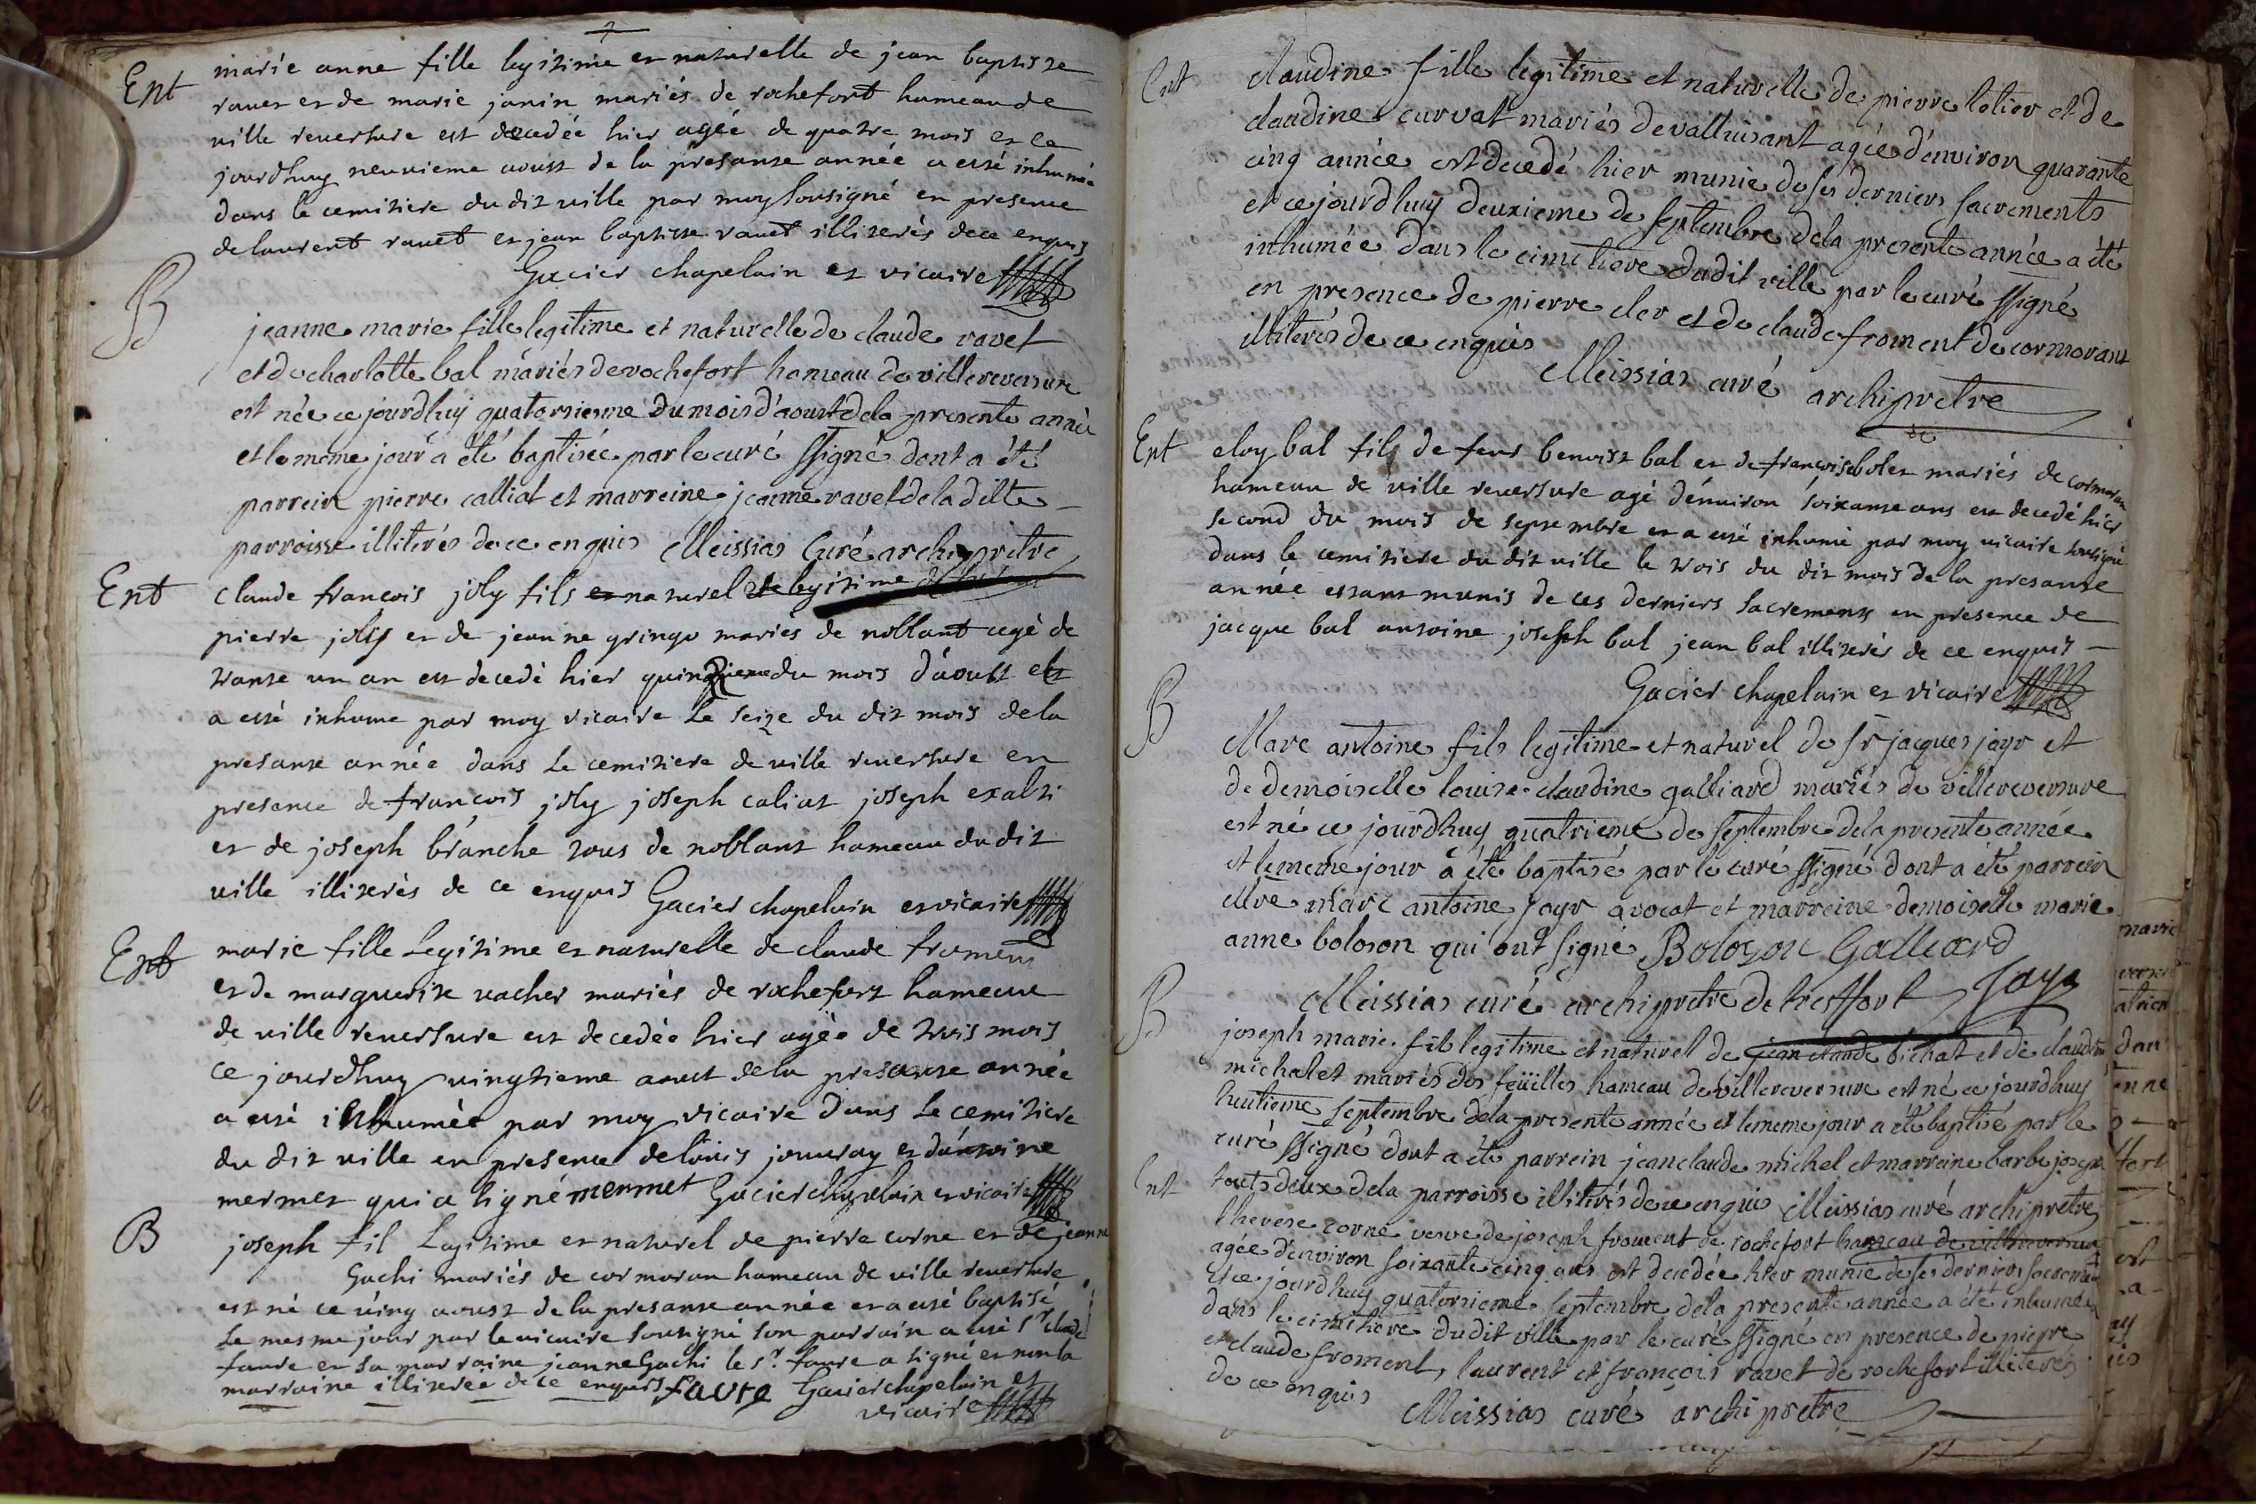 Ent
marie anne fille legitime et naturelle de jean baptiste
ravet et de marie janin mariés de rochefort hameau de
ville reversure est decedée hier agée de quatre mois et ce
jourdhuy neuvieme aoust de la presante année a eté inhumée
dans le cemitiere du dit ville par moy sousigné en presence
de laurent ravet et jean baptiste ravet illiterés de ce enquis
Gacier chapelain et vicaire
B
jeanne marie fille legitime et naturelle de claude ravet
et de charlotte bal mariés de rochefort hameau de villereversure
est née ce jourdhuy quatorsieme du mois d'aoust dela presente année
et le meme jour a été baptisée par le curé ssigné dont a été
parrein pierre calliat et marreine jeanne ravet de la ditte
parroisse illiterés de ce enquis Meissias Curé archipretre
Ent
claude françois joly fils et naturel et legitime de
pierre joly et de jeanne gringo mariés de noblant agé de
trante un an est decedé hier quinzieme du mois d'aoust et
a eté inhume par moy vicaire le seize du dit mois de la
presante année dans le cemitiere de ville reversure en
presence de françois joly joseph caliat joseph
et de joseph branche tous de noblant hameau du dit
ville illiterés de ce enquis Gacier chapelain et vicaire
Ent
marie fille legitime et naturelle de claude froment
et de marguerite vacher mariés de rochefort hameau
de ville reversure est decedée hier agée de trois mois
ce jourdhuy vingtieme aoust dela presante année
a eté inhumée par moy vicaire dans le cemitiere
du dit ville en presence de louis jouvray et d'antoine
mermet qui a signé mermet Gacier chapelain et vicaire
B
joseph fil legitime et naturel de pierre corne et de jeanne
Gachi mariés de cormoran hameau de ville reversure
est né ce vingt aoust de la presante année et a eté baptisé
le mesme jour par le vicaire sousigné son parrain a eté sr claude
faure et sa marraine jeanne Gachi le sr. faure a signé et non la
marraine illiterée de ce enquis faure Gacier chapelain et
vicaire
Ent
claudine fille legitime et naturelle de pierre letier et de
claudine curvat mariés de valluisant agée d'environ quarante
cinq année est decedé hier munie de ses derniers sacrements
et ce jourdhuy deuxieme de septembre dela presente année a été
inhumée dans le cimetiere dudit ville par le curé ssigné
en presence de pierre cler et de claude froment de cormorant
illiterés de ce enquis
Meissias curé archipretre
Ent
eloy bal fils de feus benoist bal et de françoise bolet mariés de cormoran
hameau de ville reversure agé d'environ soixante ans est decedé hier
second du mois de septembre et a eté inhumé par moy vicaire sousigné
dans le cemitiere du dit ville le trois du dit mois de la presante
année estant munis de ces derniers sacrements en presence de
jacque bal antoine joseph bal jean bal illiterés de ce enquis
Gacier chapelain et vicaire
B
Marc antoine fils legitime et naturel de sr jacques jayr et
de demoiselle louise claudine galliard mariés de villereversure
est né ce jourdhuy quatrieme de septembre dela presente année
et le meme jour a été baptisé par le curé ssigné dont a été parrein
Mre marc antoine jayr avocat et marreine demoiselle marie
anne boloson qui ont signé Boloson Galleard
Meissias curé archipretre de treffort Jayr
B
joseph marie fils legitime et naturel de jean claude bichat et de claudine
michalet mariés des feüilles hameau de villereversure est né ce jourdhuy
huitieme septembre dela presente année et le meme jour a été baptisé par le
curé ssigné dont a été parrein jean claude michel et marreine barbe joseph
touts deux dela parroisse illiterés de ce enquis Meissias curé archipretre
Ent
therese corne veuve de joseph froment de rochefort hameau de villereversure
agée d'environ soixante cinq ans est decedée hier munie de ses derniers sacrements
et ce jourdhuy quatorsieme septembre dela presente année a été inhumée
dans le cimetiere dudit ville par le curé ssigné en presence de pierre
et claude froment, laurent et françois ravet de rochefort illiterés
de ce enquis
Meissias curé archipretre